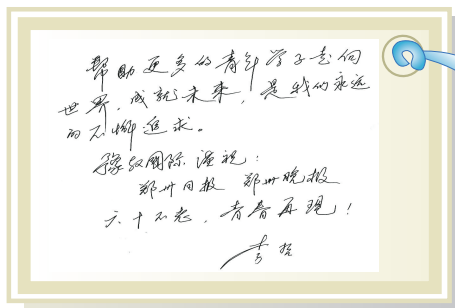 帮助更多的青年学子走向
世界，成就未来，是我们永远
的不懈追求。
豫教國际谨祝：
郑州日报 郑州晚报
六十不老，青春再现！
李